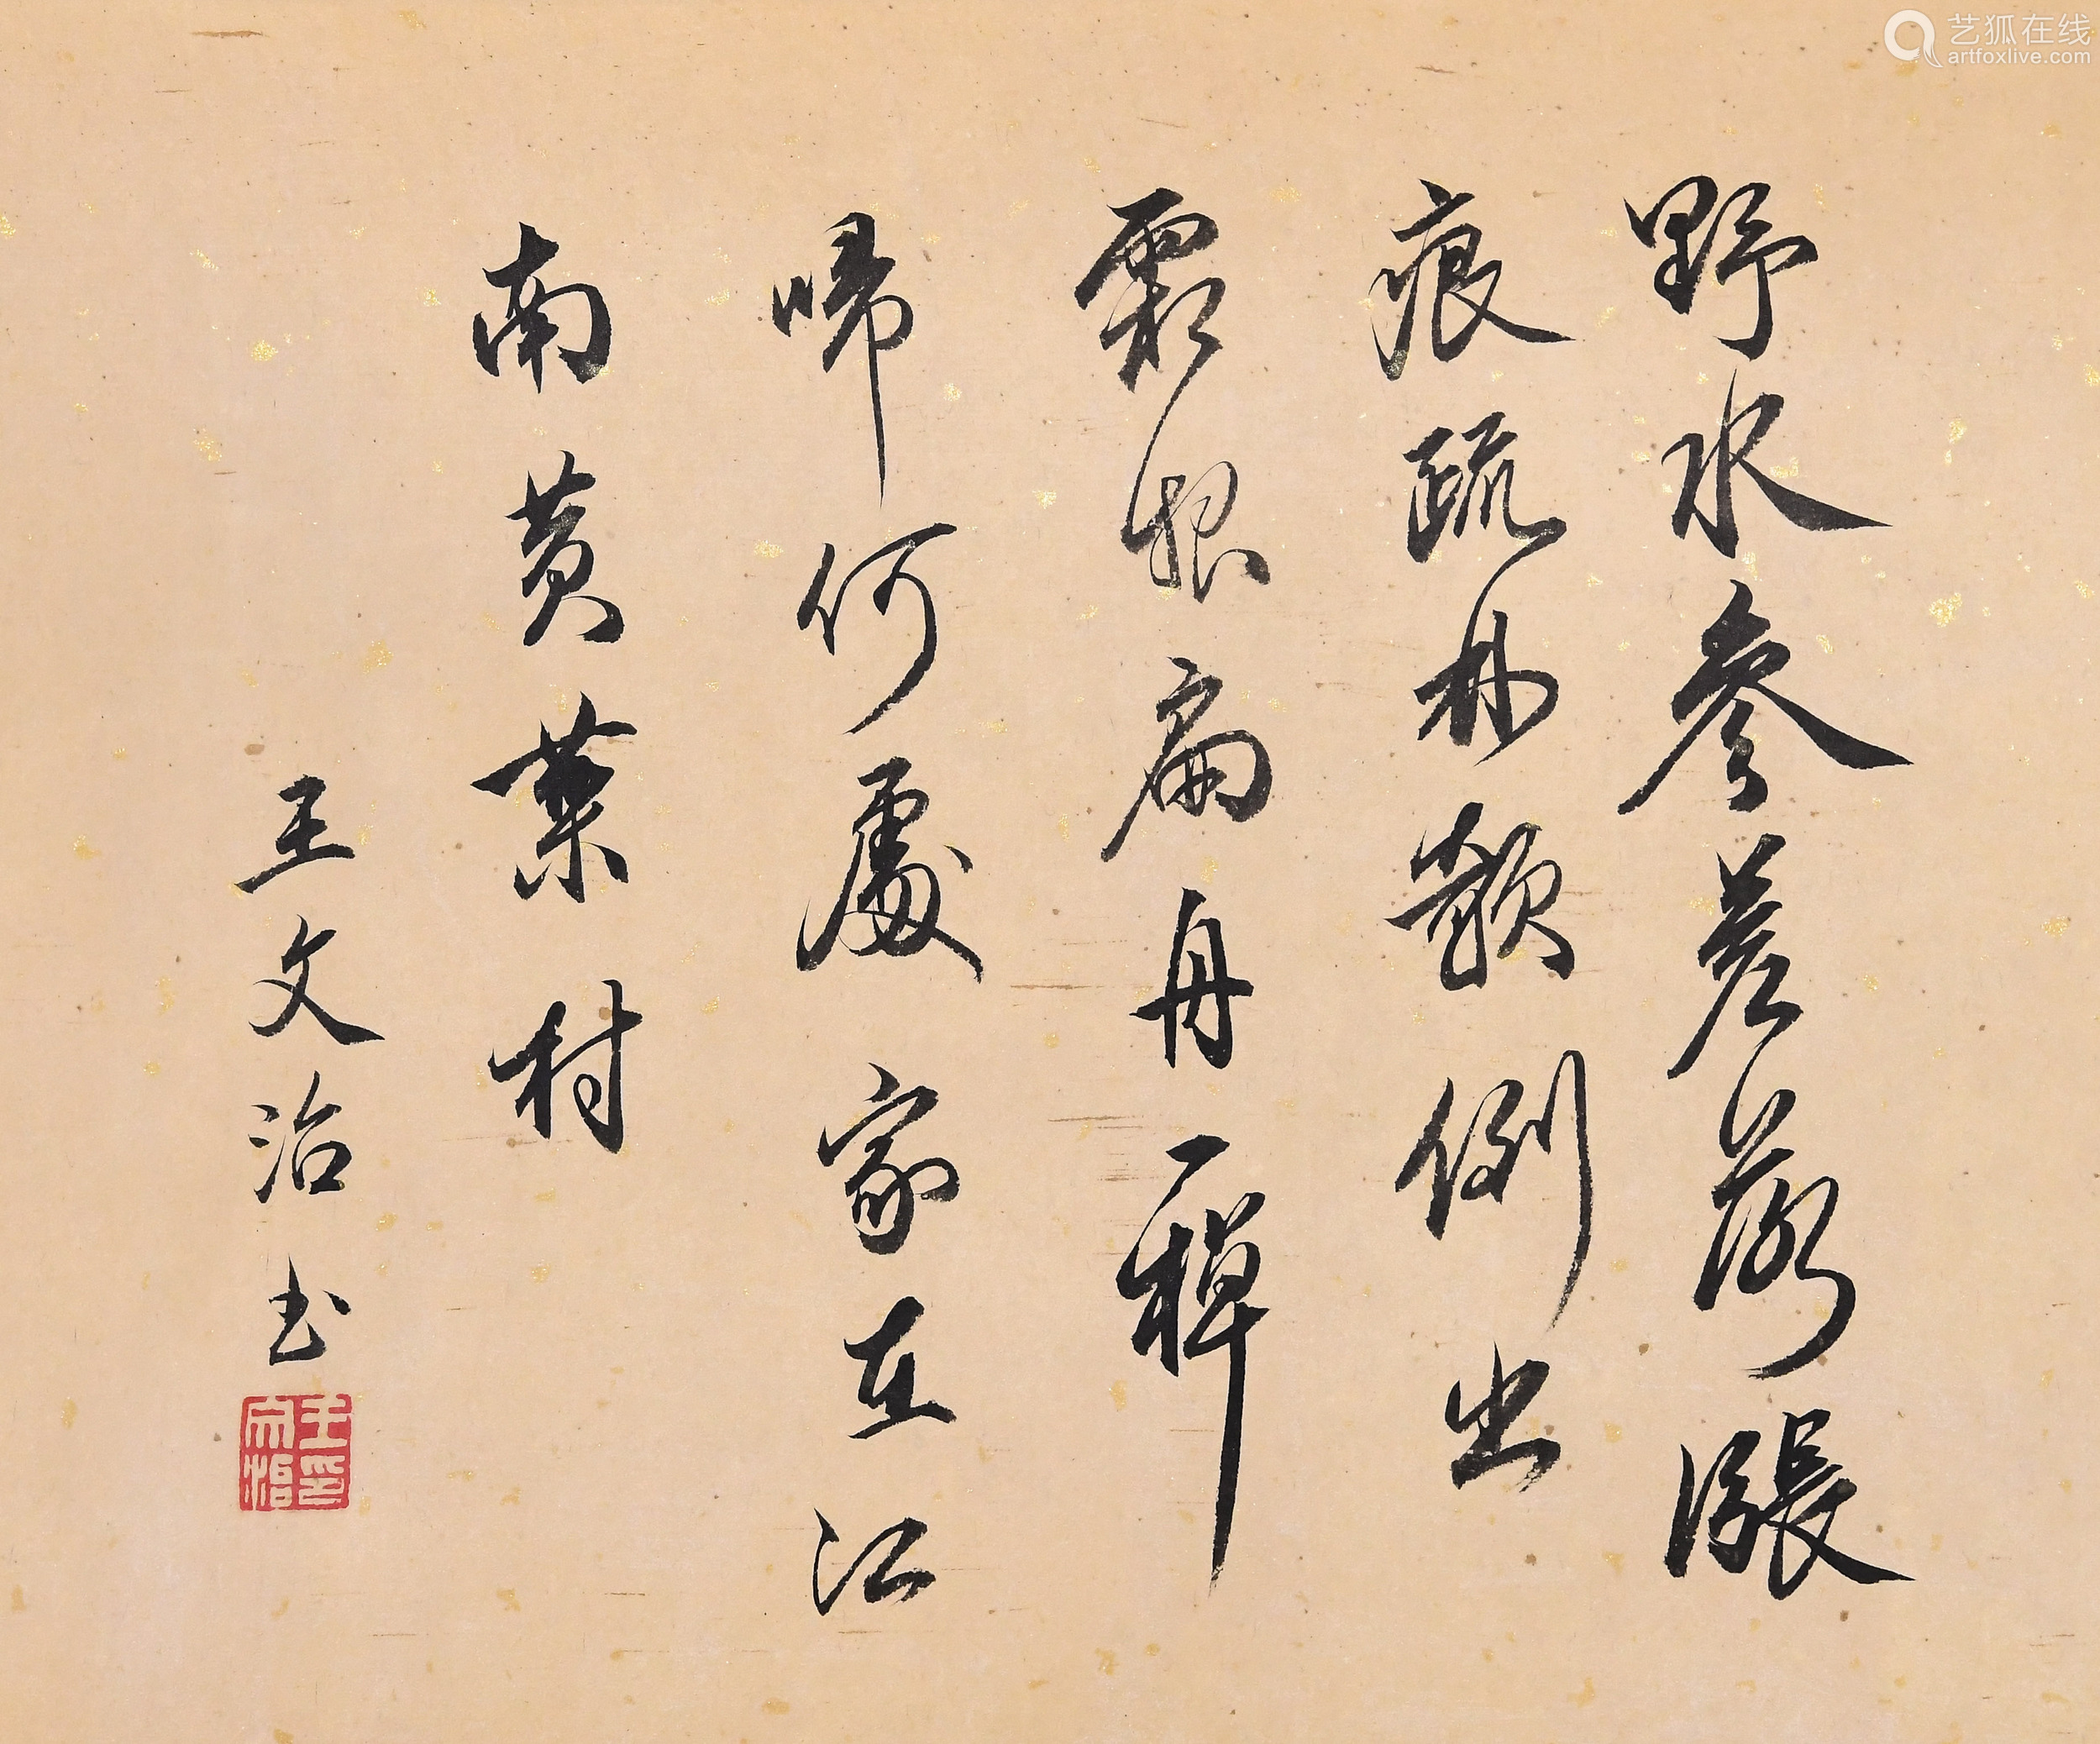 艺狐在线
artfoxlive.com
野水參差落漲
痕疏林欹倒出
霜根扁舟一棹
歸何處家在江
南黄葉村
王文治書
王文治印